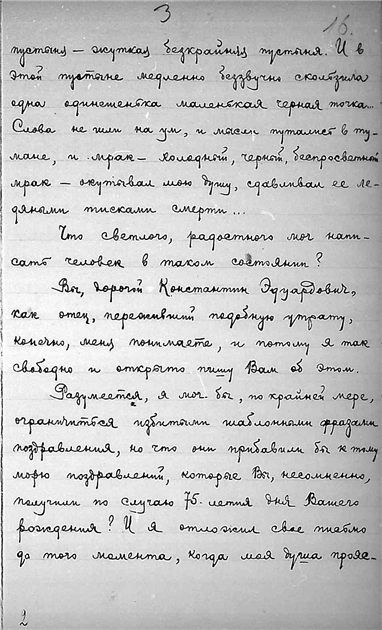 3
16.
пустыня — жуткая безкрайняя пустыня. И в
этой пустыне медленно беззвучно скользила
одна одинешенька маленькая черная точка...
Слова не шли на ум, и мысли путались в ту-
мане, и мрак — холодный, черный, беспросветный
мрак — окутывал мою душу, сдавливал ее ле-
дяными тисками смерти...
Что светлого, радостного мог напи-
сать человек в таком состоянии?
Вы, дорогой Константин Эдуардович,
как отец, переживший подобную утрату,
конечно, меня понимаете, и потому я так
свободно и открыто пишу Вам об этом.
Разумеется, я мог бы, по крайней мере,
ограничиться избитыми шаблонными фразами
поздравления, но что они прибавили бы к тому
морю поздравлений, которые Вы, несомненно,
получили по случаю 75-летия дня Вашего
рождения? И я отложил свое письмо
до того момента, когда моя душа прояс-
2